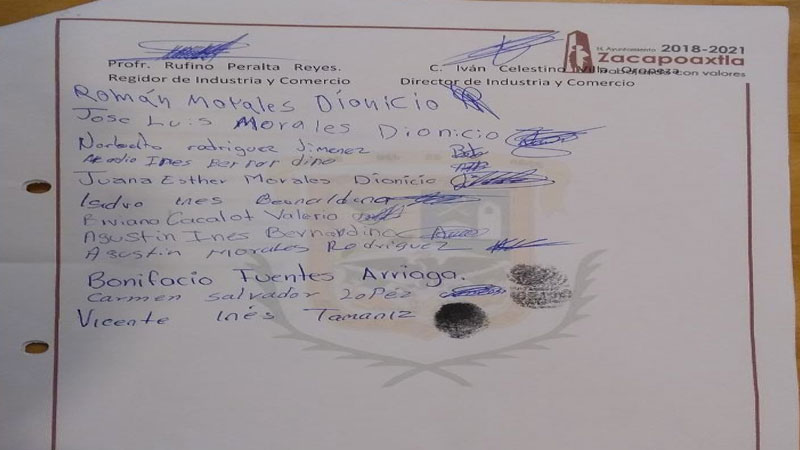 H. Ayuntamiento 2018-2021
Zacapoaxtla
con valores
Profr. Rufino Peralta Reyes.
Regidor de Industria y Comercio
C. Iván Celestino Villa Oropeza
Director de Industria y Comercio
Román Morales Dionicio
Jose Luis Morales Dionicio
Norberto rodriguez Jimenez
Ines Bernardino
Juana Esther Morales Dionicio
Isidro Ines
Viviano Cacalot Valerio
Agustin Ines Bernardino
Agustin Morales Rodriguez
Bonifacio Fuentes Arriaga.
Carmen Salvador Lopéz
Vicente Inés Tamaniz